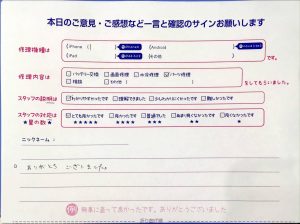 本日のご意見・ご感想など一言と確認のサインお願いします
修理機種は
(iPhone ) (Android )
(iPad ) その他
修理内容は
バッテリー交換 画面修理 水没修理 パーツ修理
相談 その他( )
をしてもらいました。
スタッフの説明は
わかりやすかったです 理解できました 少しわかりにくかったです 難しかったです
スタッフの対応は
★星の数★
とても良かったです 良かったです 普通でした あまり良くなかったです 良くなかったです
★★★★★ ★★★★ ★★★ ★★ ★
ニックネーム:
ありがとう ございました。
無事に直って良かったです。ありがとうございました